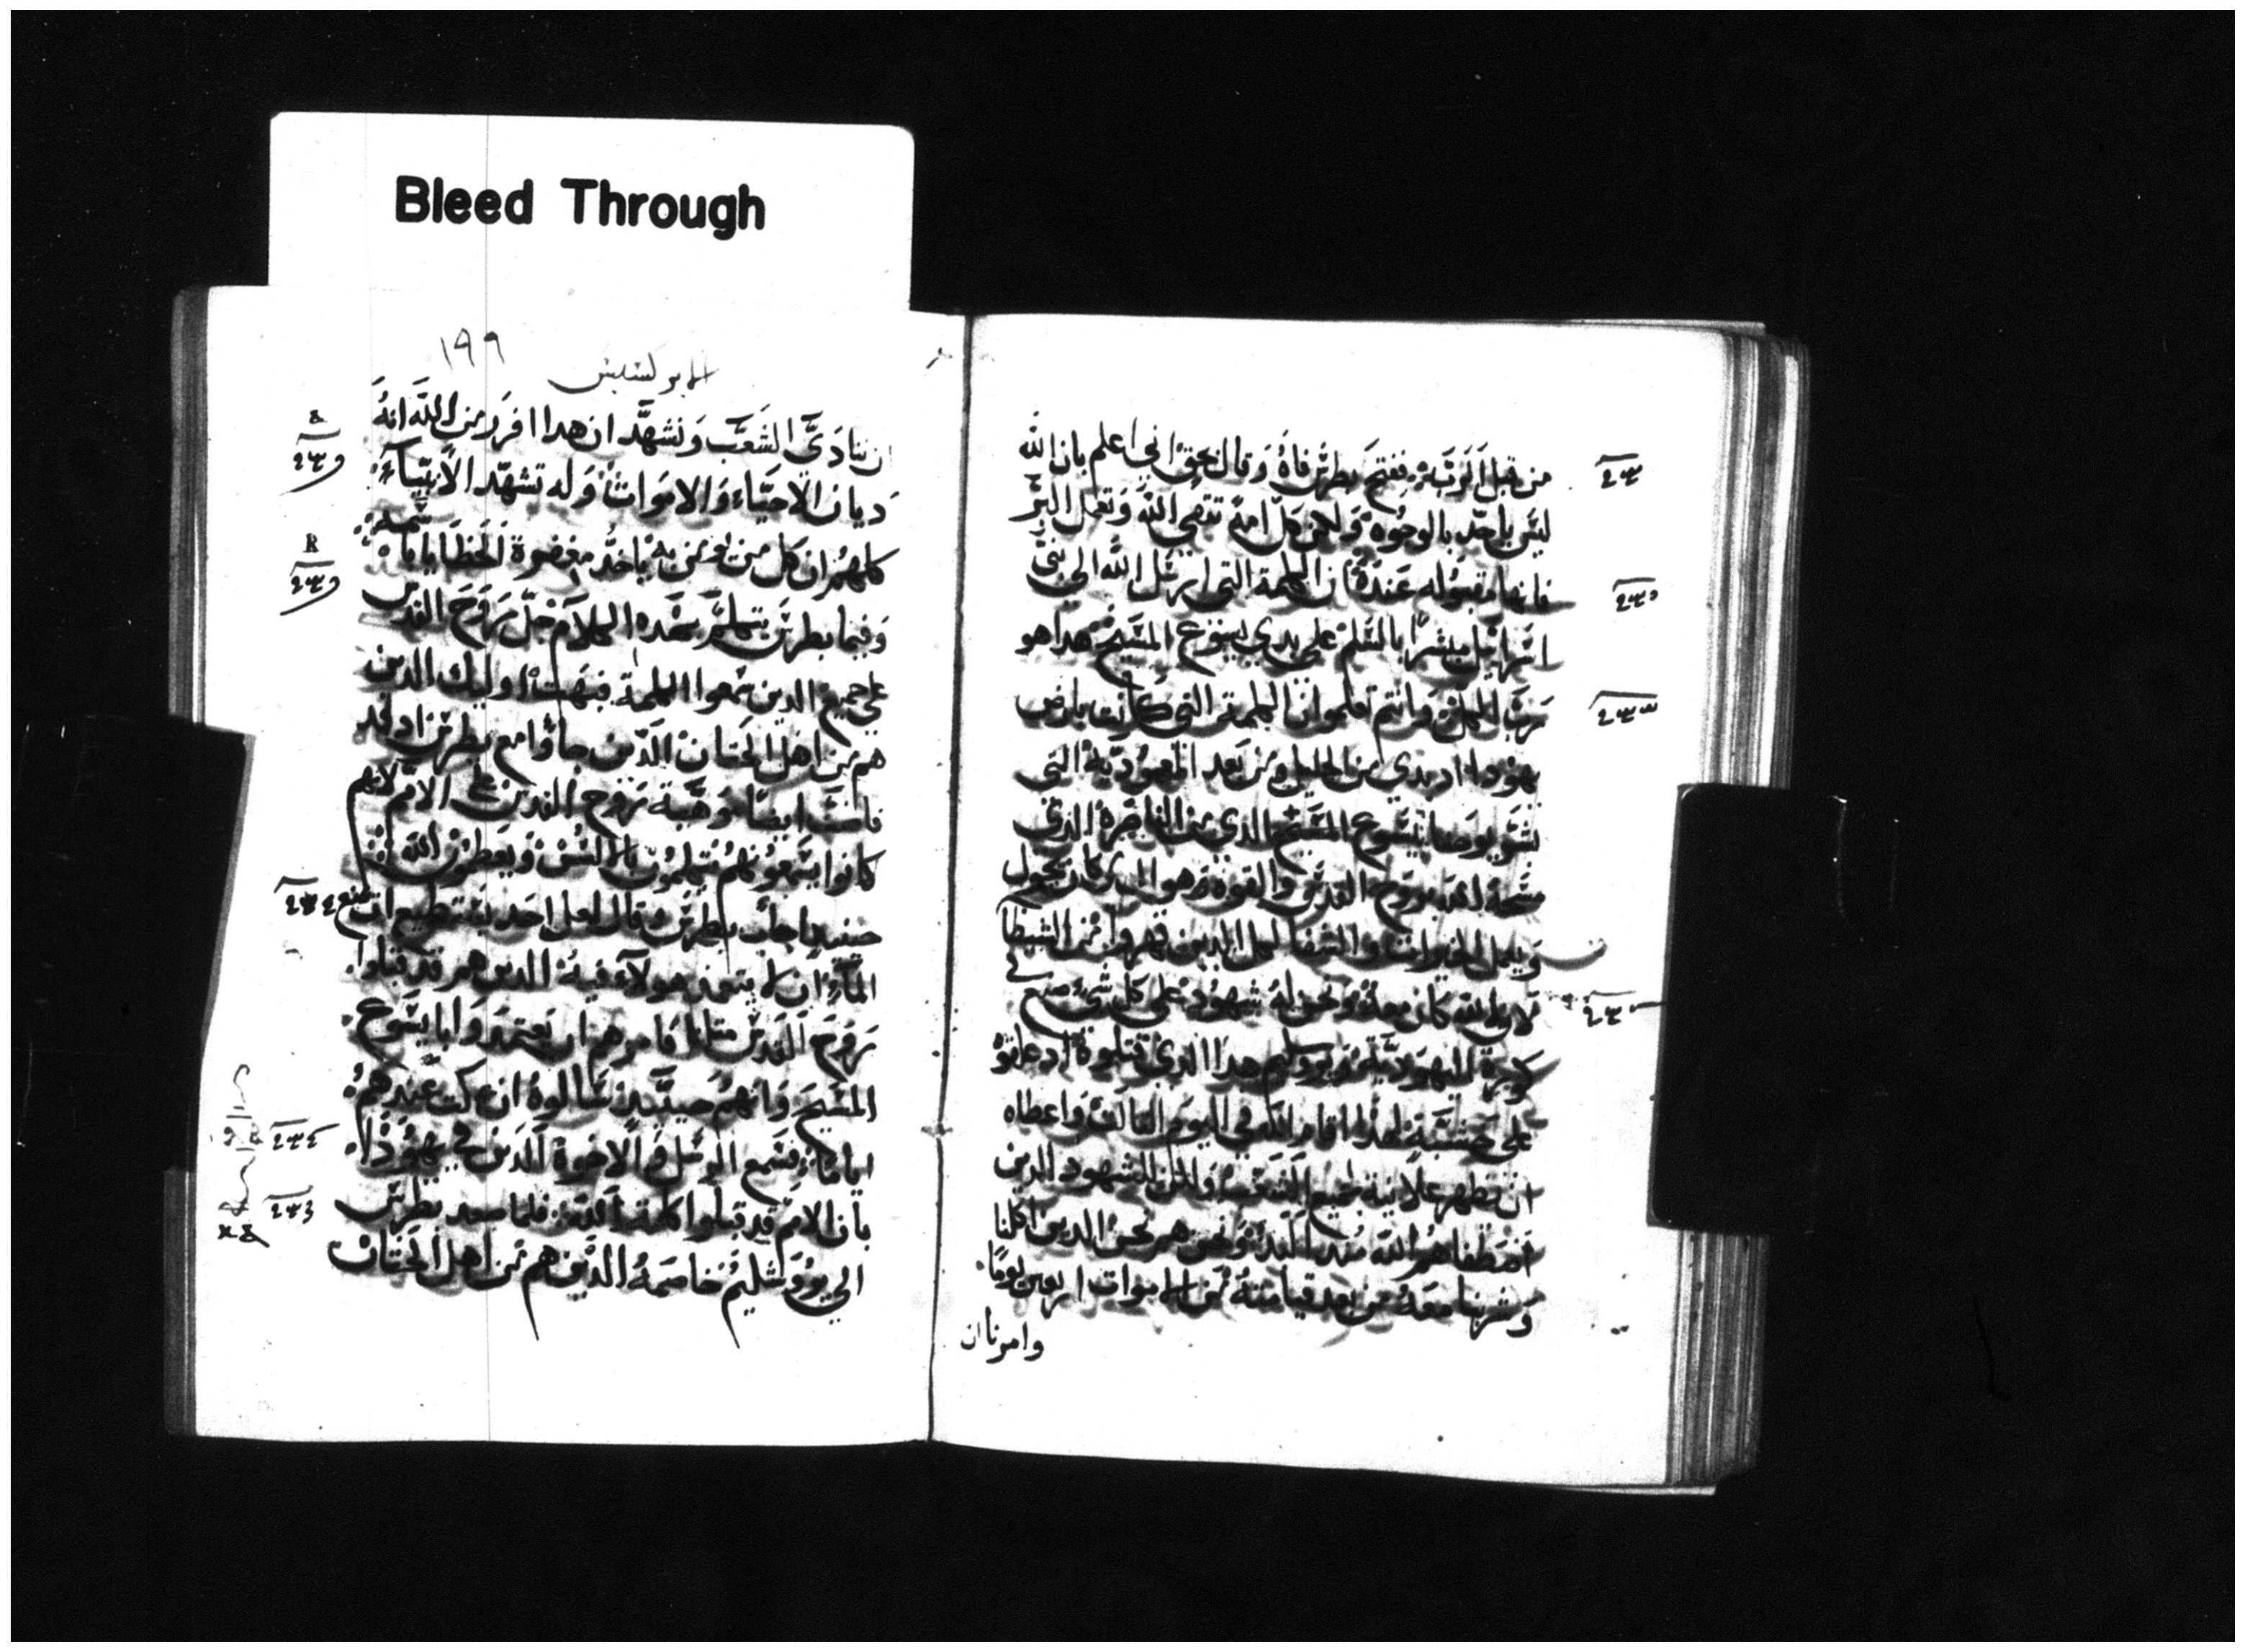 Bleed Through
من قبل الرب ففتح بطرس فاه وقال بحق اني اعلم بان الله
ليس ياخد بالوجوه ولكن كل امة تتقي الله وتعمل البر
فانها مقبوله عنده ان الكلمة التي ارسل الله الي بني
اسراييل مبشرا بالسلم علي يدي يسوع المسيح هدا هو
رب الكل وانتم تعلموا ان الكلمة التي كانت بارض
يهودا اد بدي من الجليل ومن بعد المعمودية التي
بشر يوحنا يسوع المسيح الدي من الناصرة الدي
مسحه الله بروح القدس والقوة وهو الدي كان يجول
ويعمل الخيرات والشفا لكل الدين قهروا من الشيطا
ن
لان الله كان معه ونحن له شهود علي كل شي صنع في
كورة اليهودية ويروشليم هدا الدي قتلوه اد علقوه
علي خشبة لهدا اقام الله في اليوم التالت واعطاه
ان يظهر علانية لجميع الشعب ولكن للشهود الدين
اصطفاهم الله مند البدء ونحن هم نحن الدين اكلنا
وشربنا معه من بعد قيامته من الاموات اربعين يوما
وامرنا ان
١٩٩
الابركسيس
ان ننادي الشعب ونشهد ان هدا افرز من الله انه
ديان الاحياء والاموات وله تشهد الانبياء
كلهم ان كل من يومن به ياخد مغفرة الخطايا باسمه
وفيما بطرس يتكلم بهده الكلام حل روح القدس
علي جميع الدين سمعوا الكلمة فبهت اوليك الدين
هم من اهل الختان الدين جاؤا مع بطرس اد قد
فاضت ايضا وهبة روح القدس علي الامم لانهم
كانوا يسمعونهم يتكلمون بالالسن ويعظمون الله
حينيد اجاب بطرس قال لعل احد يستطيع ان يمنع
الماء ان لا يتعمد هولاء فيه الدين هم قد قبلوا
روح القدس متلنا فامرهم ان يعتمدوا باسم يسوع
المسيح وانهم حينيد سالوه ان يمكت عندهم
اياما فسمع الرسل والاخوة الدين في يهودا
بان الامم قد قبلوا كلمة الله فلما صعد بطرس
الي يروشليم خاصمه الدين هم من اهل الختان